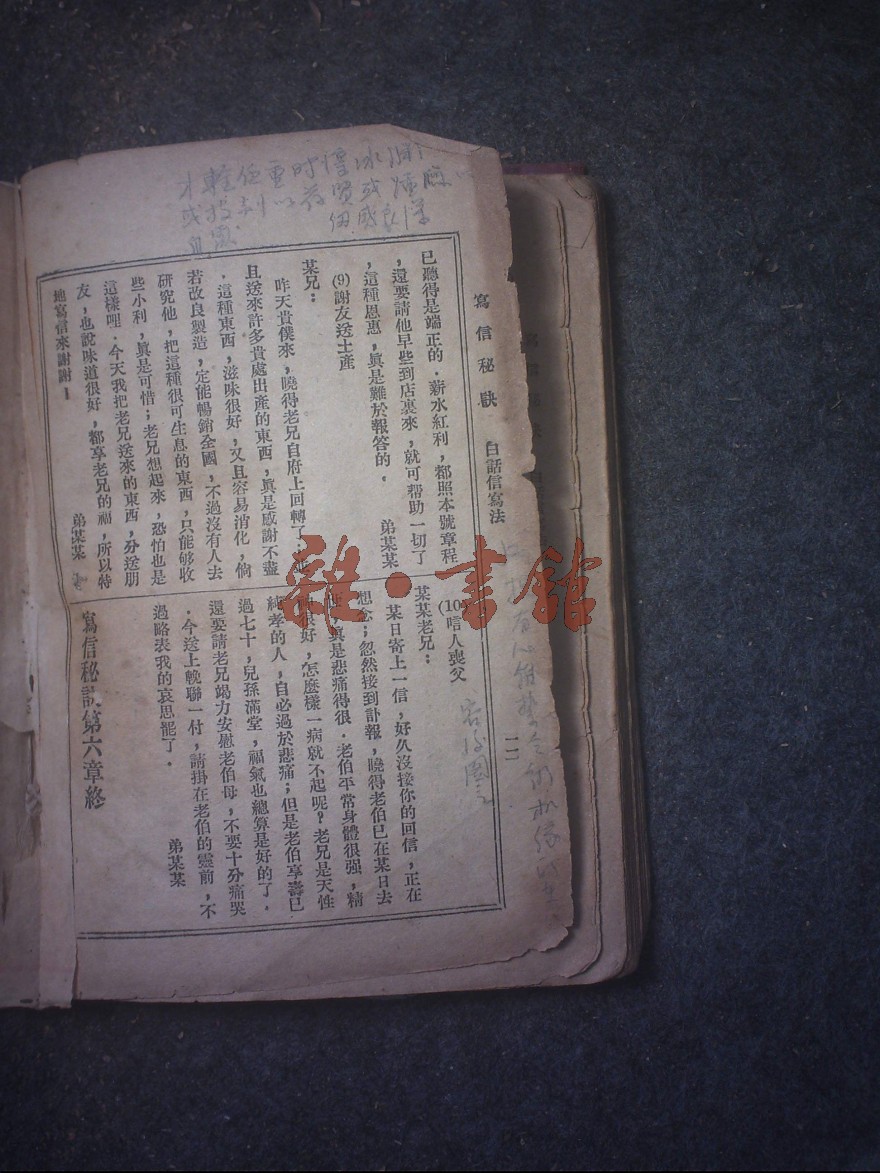 寫信秘訣　白話信寫法
一一
已聽得是端正的．薪水紅利，都照本號章程
，還要請他早些到店裏來，就可帮助一切了
，這種恩惠，眞是難於報答的．　弟某某
(9)謝友送土產
某兄：
昨天貴僕來，曉得老兄自府上回轉了，
且送來許多貴處出產的東西，眞是感謝不盡
．這種東西，滋味很好，又且容易消化，倘
若改良製造，定能暢銷全國，不過沒有人去
研究他，把這種很可生息的東西，只能够收
些小利，眞是可惜；老兄想起來，恐怕也是
這樣哩．今天我把老兄送來的東西，分送朋
友，也說味道很好，都享老兄的福，所以特
地寫信來謝謝！
弟某某
(10)唁人喪父
某某老兄：
某日寄上一信，好久沒接你的回信，正在
想念；忽然接到訃報，曉得老伯已在某日去
眞是悲痛得很．老伯平常身體很强，精
很好，怎麽樣一病就不起呢？老兄是天性
純孝的人，自必過於悲痛；但是老伯享壽已
過七十，兒孫滿堂，福氣也總算是好的了．
還要請老兄竭力安慰老伯母，不要十分痛哭
．今送上輓聯一付，請掛在老伯的靈前，不
過略表我的哀思罷了．
弟某某
寫信秘訣第六章終
雜·書館